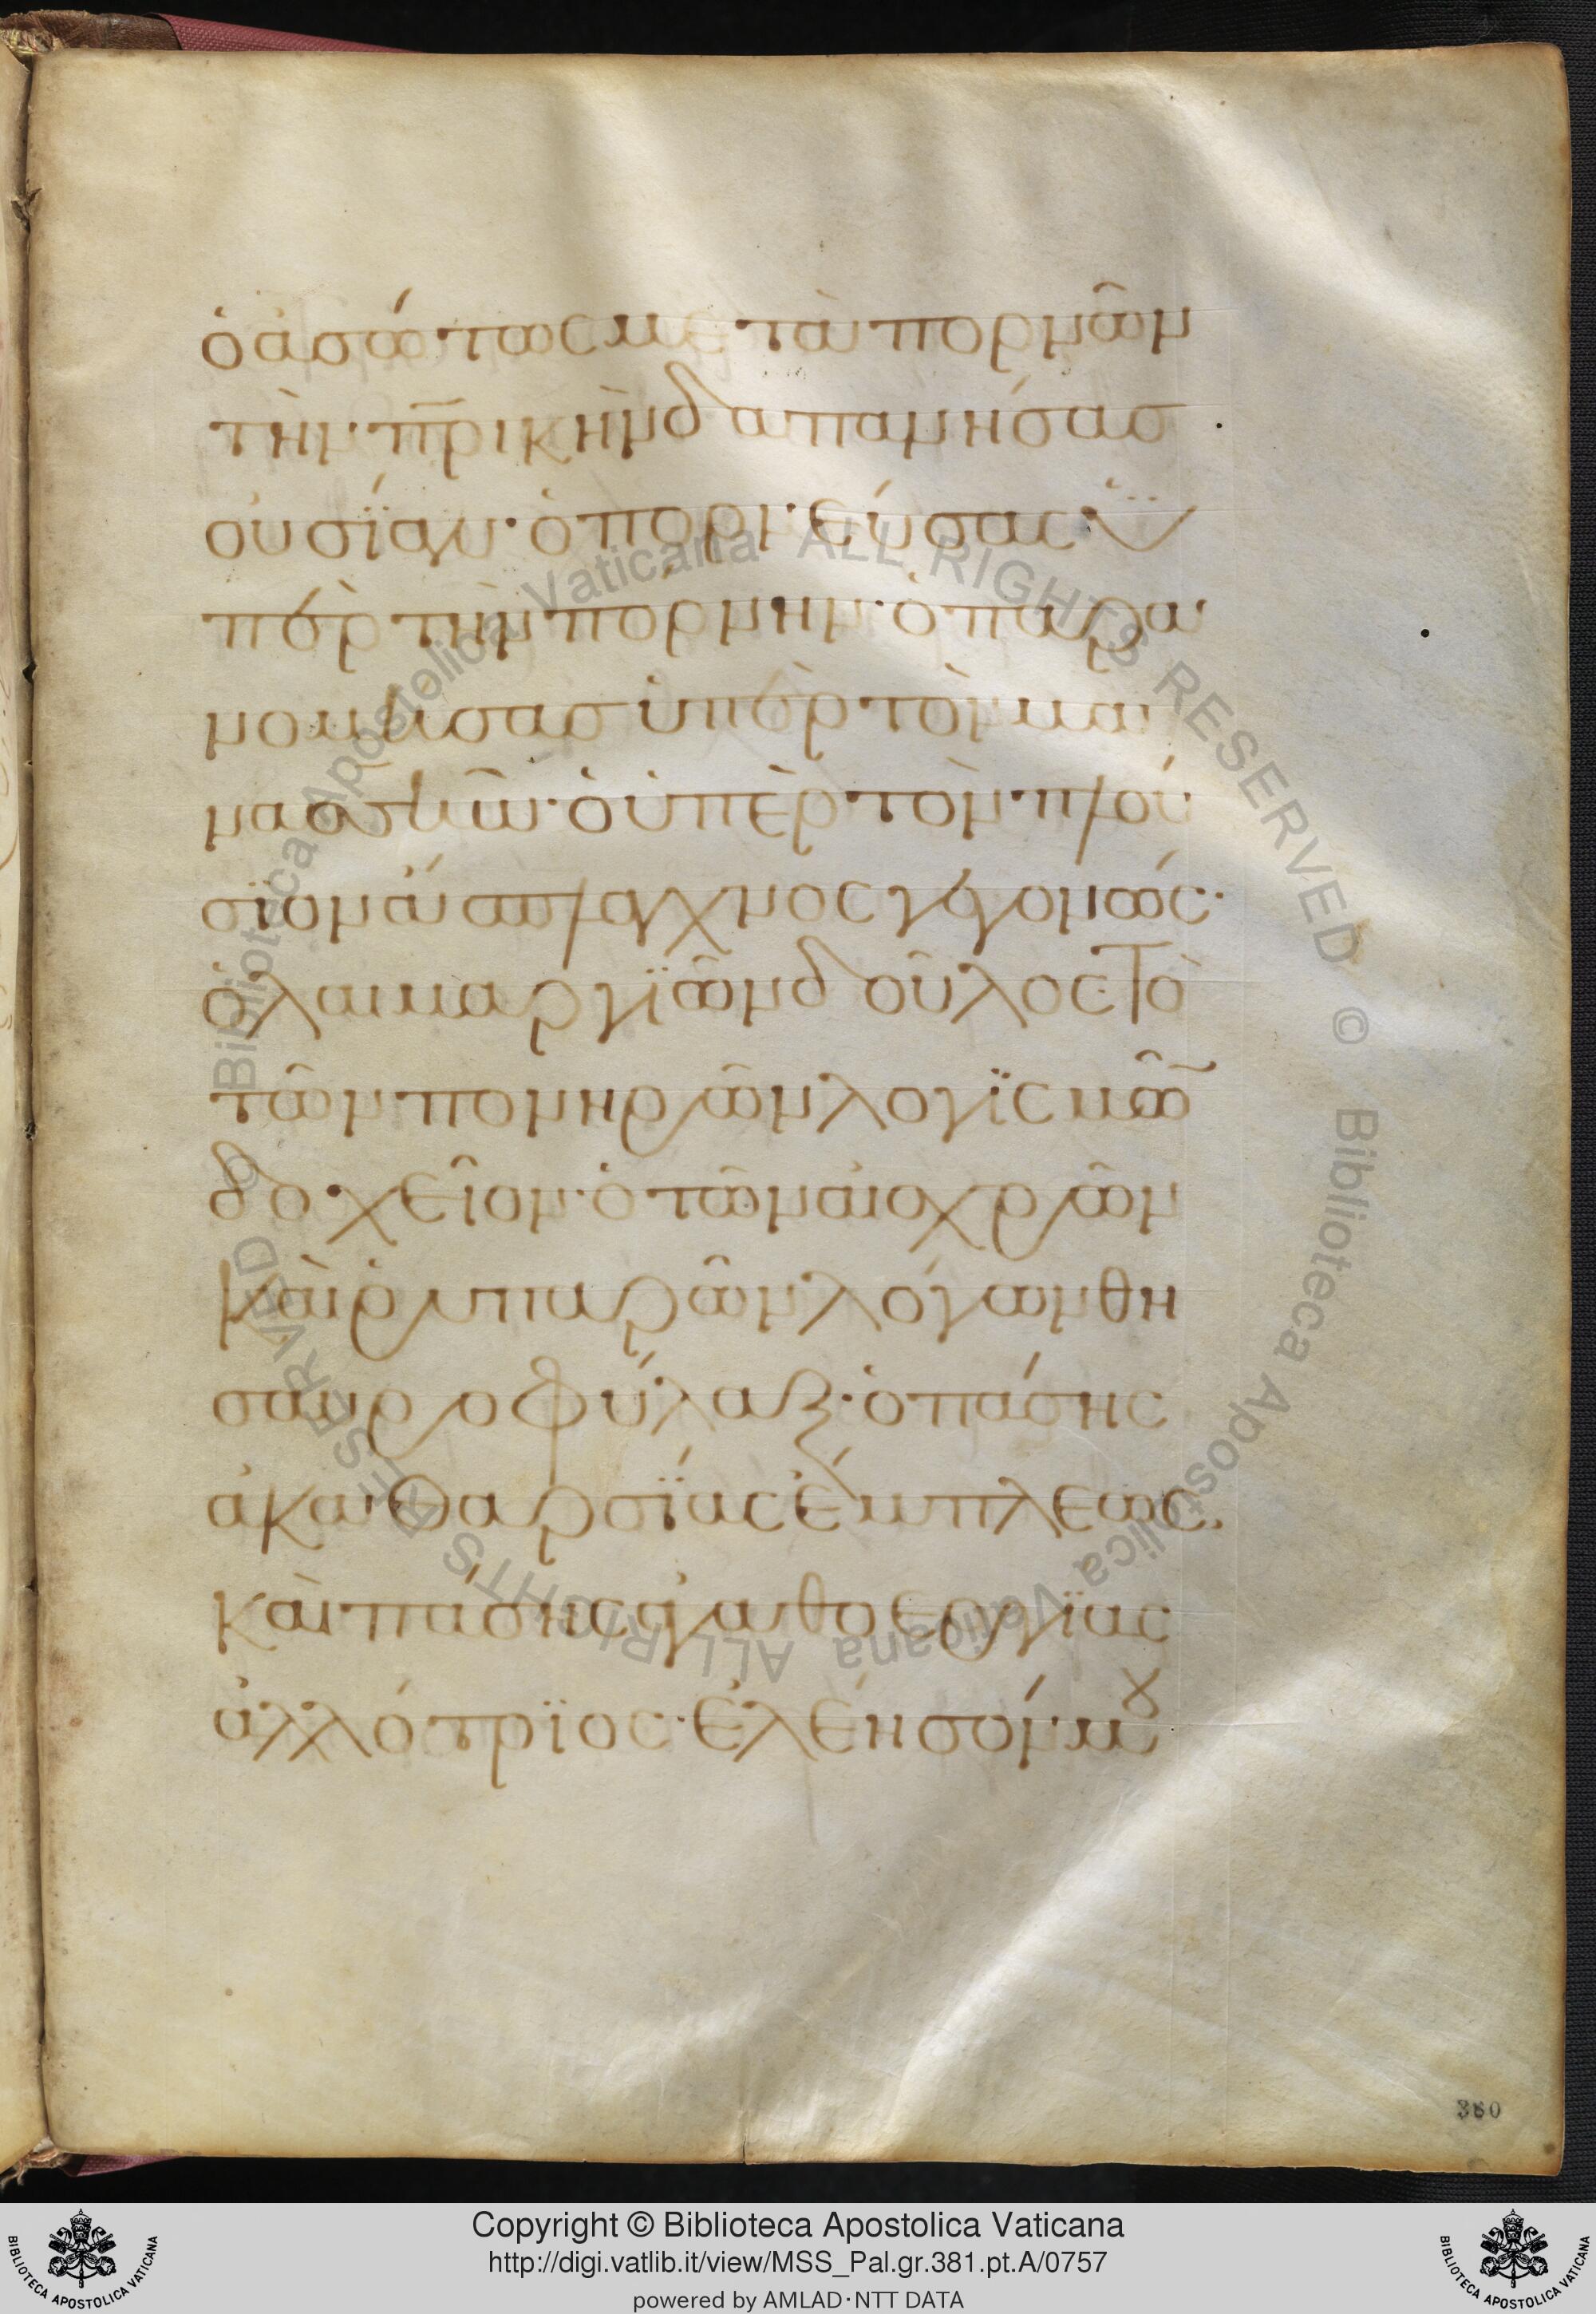 ὁ ἀσώτως μετὰ πορνῶν
τὴν πρικὴν δαπανήσας
οὐσΐαν· ὁ πορνεύσας ὑ
πὲρ τὴν πόρνην· ὁ παρα
νομήσας ὑπὲρ τὸν μα
νασσῆ· ὁ ὑπὲρ τὸν πλού
σϊον ἄσπλαχνος γεγονώς·
ὁ λαιμαργϊῶν δοῦλος· τὸ
τῶν πονηρῶν λογϊσμῶ
δοχεῖον· ὁ τῶν αἰσχρῶν
καὶ ῥυπαρῶν λόγων θη
σαυροφύλαξ· ὁ πάσης
ἀκαθαρσΐας ἔμπλεως·
καὶ πάσης ἀγαθοεργΐας
ἀλλότρϊος· ἐλέησόν μου
380
Copyright © Biblioteca Apostolica Vaticana
http://digi.vatlib.it/view/MSS_Pal.gr.381.pt.A/0757
powered by AMLAD·NTT DATA
© Biblioteca Apostolica Vaticana ALL RIGHTS RESERVED © Biblioteca Apostolica Vaticana ALL RIGHTS RESERVED
BIBLIOTECA APOSTOLICA VATICANA
BIBLIOTECA APOSTOLICA VATICANA